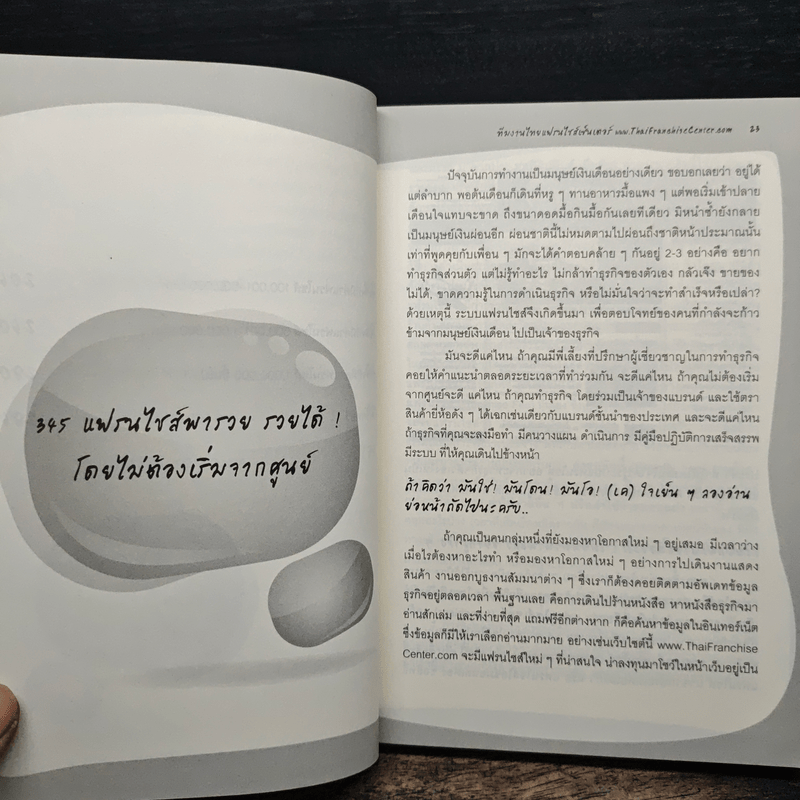 345 แฟรนไชส์พารวย รวยได้ !
โดยไม่ต้องเริ่มจากศูนย์
ทีมงานไทยแฟรนไชส์เซ็นเตอร์ www.ThaiFranchiseCenter.com 23
ปัจจุบันการทำงานเป็นมนุษย์เงินเดือนอย่างเดียว ขอบอกเลยว่า อยู่ได้
แต่ลำบาก พอต้นเดือนก็เดินที่หรู ๆ ทานอาหารมื้อแพง ๆ แต่พอเริ่มเข้าปลาย
เดือนใจแทบจะขาด ถึงขนาดอดมื้อกินมื้อกันเลยทีเดียว มิหนำซ้ำยังกลาย
เป็นมนุษย์เงินผ่อนอีก ผ่อนชาตินี้ไม่หมดตามไปผ่อนถึงชาติหน้าประมาณนั้น
เท่าที่พูดคุยกับเพื่อน ๆ มักจะได้คำตอบคล้าย ๆ กันอยู่ 2-3 อย่างคือ อยาก
ทำธุรกิจส่วนตัว แต่ไม่รู้ทำอะไร ไม่กล้าทำธุรกิจของตัวเอง กลัวเจ๊ง ขายของ
ไม่ได้, ขาดความรู้ในการดำเนินธุรกิจ หรือไม่มั่นใจว่าจะทำสำเร็จหรือเปล่า?
ด้วยเหตุนี้ ระบบแฟรนไชส์จึงเกิดขึ้นมา เพื่อตอบโจทย์ของคนที่กำลังจะก้าว
ข้ามจากมนุษย์เงินเดือน ไปเป็นเจ้าของธุรกิจ
มันจะดีแค่ไหน ถ้าคุณมีพี่เลี้ยงที่ปรึกษาผู้เชี่ยวชาญในการทำธุรกิจ
คอยให้คำแนะนำตลอดระยะเวลาที่ทำร่วมกัน จะดีแค่ไหน ถ้าคุณไม่ต้องเริ่ม
จากศูนย์จะดี แค่ไหน ถ้าคุณทำธุรกิจ โดยร่วมเป็นเจ้าของแบรนด์ และใช้ตรา
สินค้ายี่ห้อดัง ๆ ได้เฉกเช่นเดียวกับแบรนด์ชั้นนำของประเทศ และจะดีแค่ไหน
ถ้าธุรกิจที่คุณจะลงมือทำ มีคนวางแผน ดำเนินการ มีคู่มือปฏิบัติการเสร็จสรรพ
มีระบบ ที่ให้คุณเดินไปข้างหน้า
ถ้าคิดว่า มันใช่! มันโดน! มันโอ! (เค) ใจเย็น ๆ ลองอ่าน
ย่อหน้าถัดไปนะครับ..
ถ้าคุณเป็นคนกลุ่มหนึ่งที่ยังมองหาโอกาสใหม่ ๆ อยู่เสมอ มีเวลาว่าง
เมื่อไรต้องหาอะไรทำ หรือมองหาโอกาสใหม่ ๆ อย่างการไปเดินงานแสดง
สินค้า งานออกบูธงานสัมมนาต่าง ๆ ซึ่งเราก็ต้องคอยติดตามอัพเดทข้อมูล
ธุรกิจอยู่ตลอดเวลา พื้นฐานเลย คือการเดินไปร้านหนังสือ หาหนังสือธุรกิจมา
อ่านสักเล่ม และที่ง่ายที่สุด แถมฟรีอีกต่างหาก ก็คือค้นหาข้อมูลในอินเทอร์เน็ต
ซึ่งข้อมูลก็มีให้เราเลือกอ่านมากมาย อย่างเช่นเว็บไซต์นี้ www.ThaiFranchise
Center.com จะมีแฟรนไชส์ใหม่ ๆ ที่น่าสนใจ น่าลงทุนมาโชว์ในหน้าเว็บอยู่เป็น